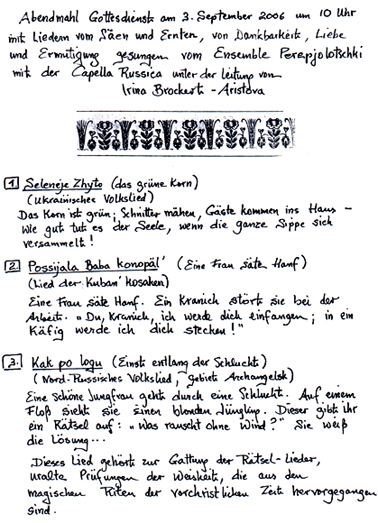 Abendmahl Gottesdienst am 3. September 2006 um 10 Uhr
mit Liedern vom Säen und Ernten, von Dankbarkeit, Liebe
und Ermutigung gesungen vom Ensemble Perepjolotschki
mit der Capella Russica unter der Leitung von
Irina Brockert-Aristova
1 Seleneje Zhyto (das grüne Korn)
(Ukrainisches Volkslied)
Das Korn ist grün; Schnitter mähen, Gäste kommen ins Haus –
Wie gut tut es der Seele, wenn die ganze Sippe sich
versammelt!
2. Possijala Baba konopäl' (Eine Frau säte Hanf)
(Lied der Kuban' Kosaken)
Eine Frau säte Hanf. Ein Kranich störte sie bei der
Arbeit. „Du, Kranich, ich werde dich einfangen; in ein
Käfig werde ich dich stecken!"
3. Kak po logu (Einst entlang der Schlucht)
(Nord-Russisches Volkslied, Gebiet Archangelsk)
Eine schöne Jungfrau geht durch eine Schlucht. Auf einem
Floß sieht sie einen blonden Jüngling. Dieser gibt ihr
ein Rätsel auf: „Was rauscht ohne Wind?" Sie weiß
die Lösung...
Dieses Lied gehört zur Gattung der Rätsel-Lieder,
uralte Prüfungen der Weisheit, die aus den
magischen Riten der vorchristlichen Zeit hervorgegangen
sind.